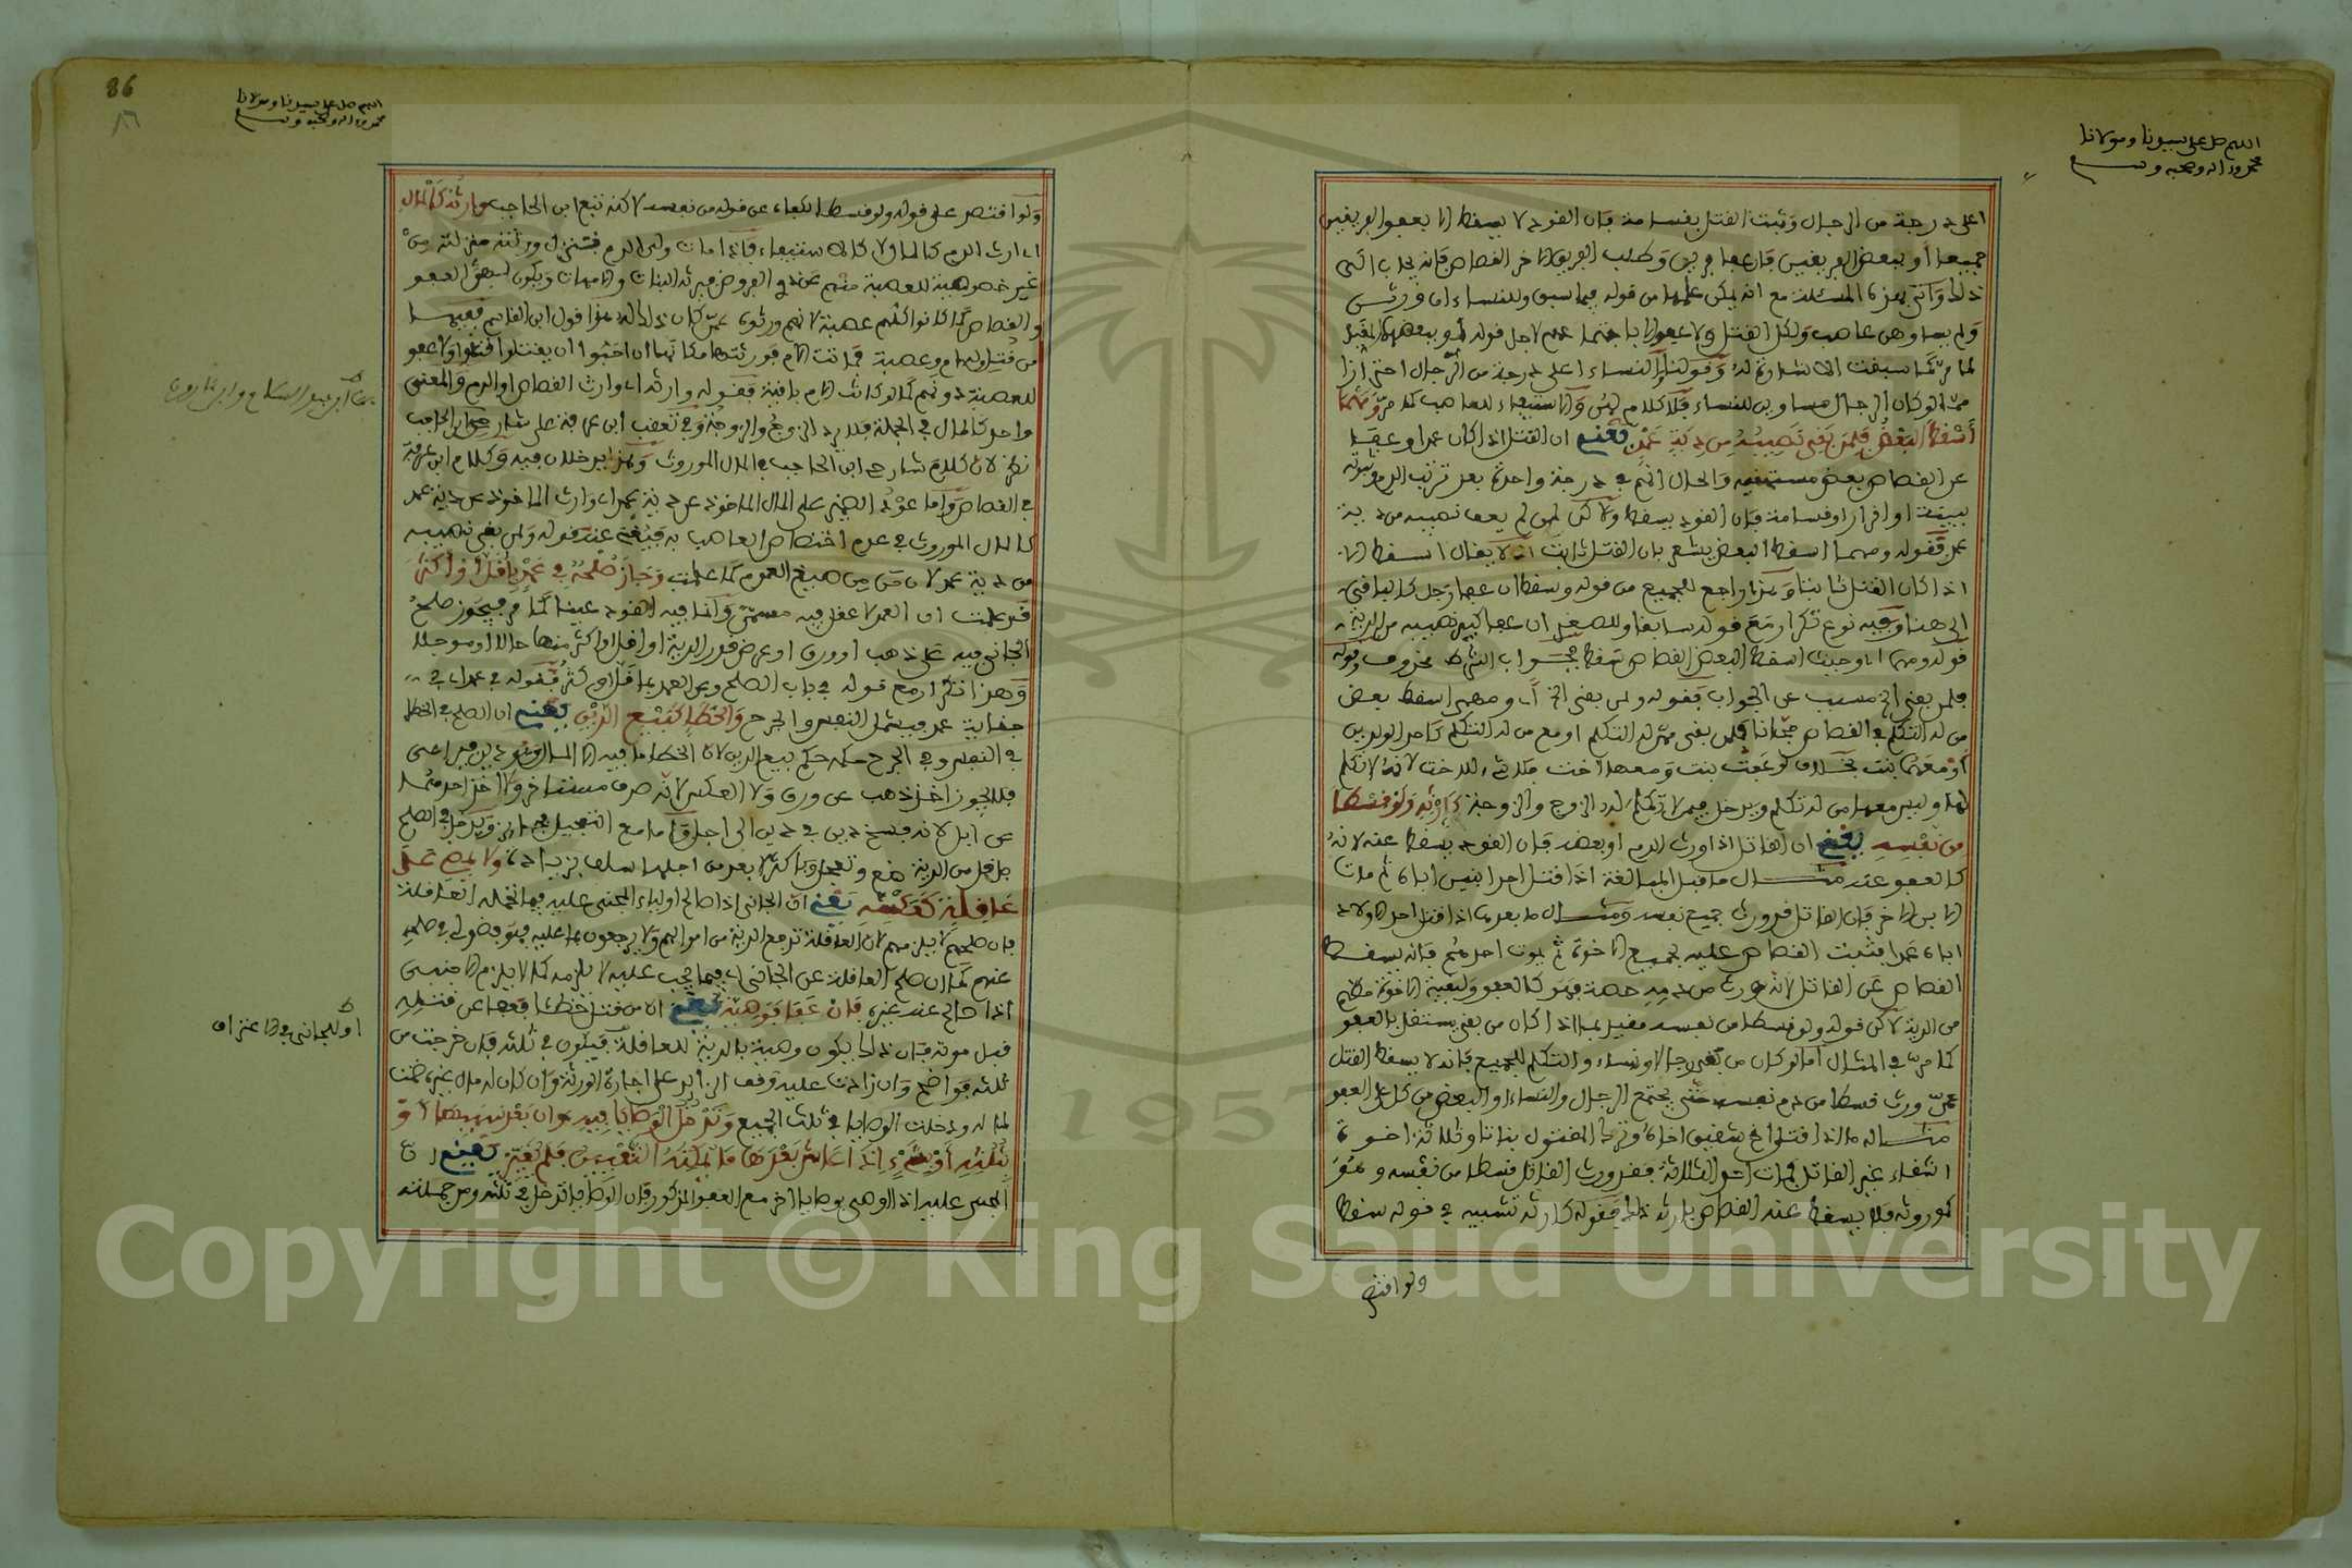 اللهم صل على سيدنا ومولانا
محمد واله وصحبه وسلم
اعلى درجة من الرجال وثبت القتل بقسامة فان القود لا يسقط الا بعفو الفريقين
جميعا او ببعض الفريقين فان عفا فريق وطلب الفريق الاخر القصاص فانه يجاب الى
ذلك واتى بهذه المسئلة مع انه يمكن علمها من قوله فيما سبق وللنساء ان ورثن
ولم يساوهن عاصب ولكل القتل ولا عفو الا باجتماعهم لاجل قوله او ببعضهما
لما مر كما سبقت الاشارة له وقولنا والنساء اعلى درجة من الرجال احترازا
مما لو كان الرجال مساوين للنساء فلا كلام لهن والاستيفاء للعاصب كما مر ومهما
أسقط البعض فلمن بقي نصيبه من دية عمد يعني ان القتل اذا كان عمدا وعفا
عن القصاص بعض مستحقيه والحال انهم في درجة واحدة بعد ترتب الدم وثبوته
ببينة او اقرار او قسامة فان القود يسقط ولاكن لمن لم يعف نصيبه من دية
عمد فقوله ومهما اسقط البعض يشعر بان القتل ثابت اذ لا يقال اسقط الا
اذا كان القتل ثابتا وهذا راجع للجميع من قوله وسقط ان عفا رجل كالباقي
الى هنا وفيه نوع تكرار مع قوله سابقا وللصغير ان عفا كبير نصيبه من الدية
قوله ومهما اي وحيث اسقط البعض القصاص سقط فجواب الشرط محذوف وقوله
فلمن بقي الخ مسبب عن الجواب فقوله ولمن بقي الخ اي ومهما اسقط بعض
من له التكلم في القصاص مجانا فلمن بقي ممن له التكلم او مع من له التكلم كاحد الولدين
او معهما بنت بخلاف لو عفت بنت ومعها اخت فلا شيء للاخت لانه لا تكلم
لها وليس معها من له تكلم ويدخل فيمن لا تكلم له الزوج والزوجة كإرثه ولو قسطا
من نفسه يعني ان القاتل اذا ورث الدم او بعضه فان القود يسقط عنه لانه
كالعفو عنه مثال ما قبل المبالغة اذا قتل احد ابنين اباه ثم مات
الابن الاخر فان القاتل قد ورث جميع نفسه ومثال ما بعدها اذا قتل احد الاولاد
اباه عمدا فثبت القصاص عليه لجميع الاخوة ثم يموت احدهم فانه يسقط
القصاص عن القاتل لانه ورث من دمه حصة فهو كالعفو ولبقية الاخوة حظهم
من الدية لاكن قوله ولو قسطا من نفسه مقيد بما اذا كان من بقي يستقل بالعفو
كما مر في المثال اما لو كان من بقي رجالا ونساء والتكلم للجميع فانه لا يسقط القتل
عمن ورث قسطا من دم نفسه حتى يجتمع الرجال والنساء او البعض من كل على العفو
مثاله ما اذا قتل اخ شقيق اخاه وترك المقتول بناتا وثلاثة اخوة
اشقاء غير القاتل فمات احد الثلاثة فقد ورث القاتل قسطا من نفسه وهو
كموروثه فلا يسقط عنه القصاص بارثه ذلك فقوله كارثه تشبيه في قوله سقط
ولو اقتصر
86
٨٦
اللهم صل على سيدنا ومولانا
محمد واله وصحبه وسلم
ولو اقتصر على قوله ولو قسطا لكفاه عن قوله من نفسه لاكنه تبع ابن الحاجب وارثه كالمال
اي ارث الدم كالمال لا كالاستيفاء فاذا مات ولي الدم فتنزل ورثته منزلته من
غير خصوصية للعصبة منهم عن ذي الفروض فيرثه البنات والامهات ويكون لهن العفو
والقصاص كما لو كانوا كلهم عصبة لانهم ورثوه عمن كان ذلك له هذا قول ابن القاسم فيهما
من قتل وله ام وعصبة فماتت الام فورثتها مكانها ان احبوا ان يقتلوا قتلوا ولا عفو
للعصبة دونهم كما لو كانت الام باقية فقوله وارثه اي وارث القصاص او الدم والمعنى
واحد كالمال في الجملة فلا يرد الزوج والزوجة وفي تعقب ابن عرفة على شارحي ابن الحاجب
نظر لان كلام شارحي ابن الحاجب في المال الموروث وهذا لا خلاف فيه وكلام ابن عرفة
في القصاص واما عود الضمير على المال الماخوذ عن دية عمد اي وارث الماخوذ عن دية عمد
كالمال الموروث في عدم اختصاص العاصب به فيغني عنه قوله ولمن بقي نصيبه
من دية عمد لان من من صيغ العموم كما علمت وجاز صلحه في عمد بأقل او أكثر
قد علمت ان العمد لا عقل فيه مسمى وانما فيه القود عينا كما مر فيجوز صلح
الجاني فيه على ذهب او ورق او عرض قدر الدية او اقل او اكثر منها حالا او موجلا
وهذا تكرار مع قوله في باب الصلح وعن العمد بما قل او كثر فقوله في عمد اي في
جناية عمد فيشمل النفس والجرح والخطإ كبيع الدين يعني ان الصلح في الخطا
في النفس وفي الجرح حكمه حكم بيع الدين لان الخطا ما فيه الا المال وهو دين فيراعى
فلا يجوز اخذ ذهب عن ورق ولا العكس لانه صرف مستاخر ولا اخذ احدهما
عن ابل لانه فسخ دين في دين الى اجل واما مع التعجيل فجائز ويدخل في الصلح
باقل من الدية ضع وتعجل وباكثر لابعد من اجلها سلف بزيادة ولا يمضي على
عاقلة كعكسه يعني ان الجاني اذا صالح اولياء المجني عليه فيما تحمله العاقلة
فان صلحهم لا يلزمهم لان العاقلة تدفع الدية من اموالهم ولا يرجعون بها عليه فهو فضولي في صلحه
عنهم كما ان صلح العاقلة عن الجاني اي فيما يجب عليه لا يلزمه كما لا يلزم الاجنبي
اذا صالح عنه غيره فإن عفا فوصية يعني ان من قتل خطا فعفا عن قتله
قبل موته فان ذلك يكون وصية بالدية للعاقلة فيكون في ثلثه فان خرجت من
ثلثه فواضح وان زادت عليه وقف الزائد على اجازة الورثة وان كان له مال غيره ضمت
لماله ودخلت الوصايا في ثلث الجميع وتدخل الوصايا فيه وإن بعد سببها أو
بثلثه أو بشيء إذا عاش بعدها ما يمكنه التغيير فلم يغير يعني ان
المجني عليه اذا اوصى بوصايا اخر مع العفو المذكور فان الوصايا تدخل في ثلثه ومن جملته
او للجاني في الاعتراف
Copyright © King Saud University
1957